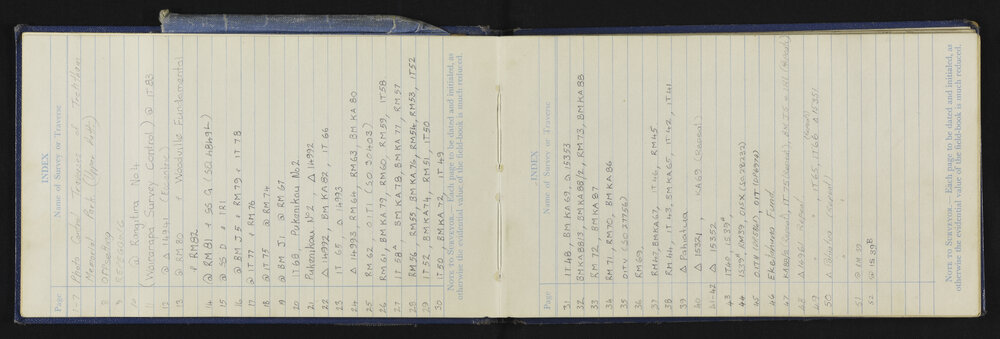 INDEX
Page Name of Survey or Traverse
1-7 Photo Control Traverses at
Memorial Park (Upper Hutt)
8 Offsetting
9
10 @ Rangitira No 4
11 (Wairarapa Survey Control) @ IT 83
12 @ △ 14941
13 @ RM 80 + Woodville Fundamental
+ RM82
14 @ RM 81 + SS G (SO 4849L)
15 @ SS D + IRI
16 @ BM J 5 + RM 79 + IT 78
17 @ IT 77 + RM 76
18 @ IT 75 @ RM 74
19 @ BM J1 @ RM 67
20 IT 68 Pukenikau No 2
21 Pukenikau No 2 △ 14992
22 △ 14992, BM KA 82, IT 66
23 IT 65 △ 14993
24 △ 14993, RM 64, RM 63, BM KA 80
25 RM 62, OIT1 (SO 20403)
26 RM 61, BM KA 79, RM 60, RM 59, IT 58
27 IT 58ᴬ BM KA 78, BM KA 77, RM 57
28 RM 56, RM 55, BM KA 76, RM 54, RM 53, IT 52
29 IT 52, BM KA 74, RM 51, IT 50
30 IT 50, BM KA 72, IT 49
NOTE TO SURVEYOR.—Each page to be dated and initialed, as
otherwise the evidential value of the field-book is much reduced.
INDEX
Page Name of Survey or Traverse
31 IT 48, BM KA 69, △ 15353
32 BM KA 88/3, BM KA 88/2, RM 73, BM KA 88
33 RM 72, BM KA 87
34 RM 71, RM 70, BM KA 86
35 OIT V (SO 27756)
36 RM 69
37 RM 67, BM KA 67, IT 46, RM 45
38 RM 44, IT 43, BM KA 65, IT 42, IT 41
39 △ Pahiatua
40 △ 15321, KA 69 (Repeat)
41-42 △ 15352
43 IT 40, IS 39ᴬ
44 IS 39ᴬ, RM 39, OIS X
45
46 Eketahuna Fund.
47
48 △ 14961 Repeat
49 IT 65, IT 66 △ 15351
50
51 @ RM 39
52 @ IS 39ᴮ
NOTE TO SURVEYOR.—Each page to be dated and initialed, as
otherwise the evidential value of the field-book is much reduced.